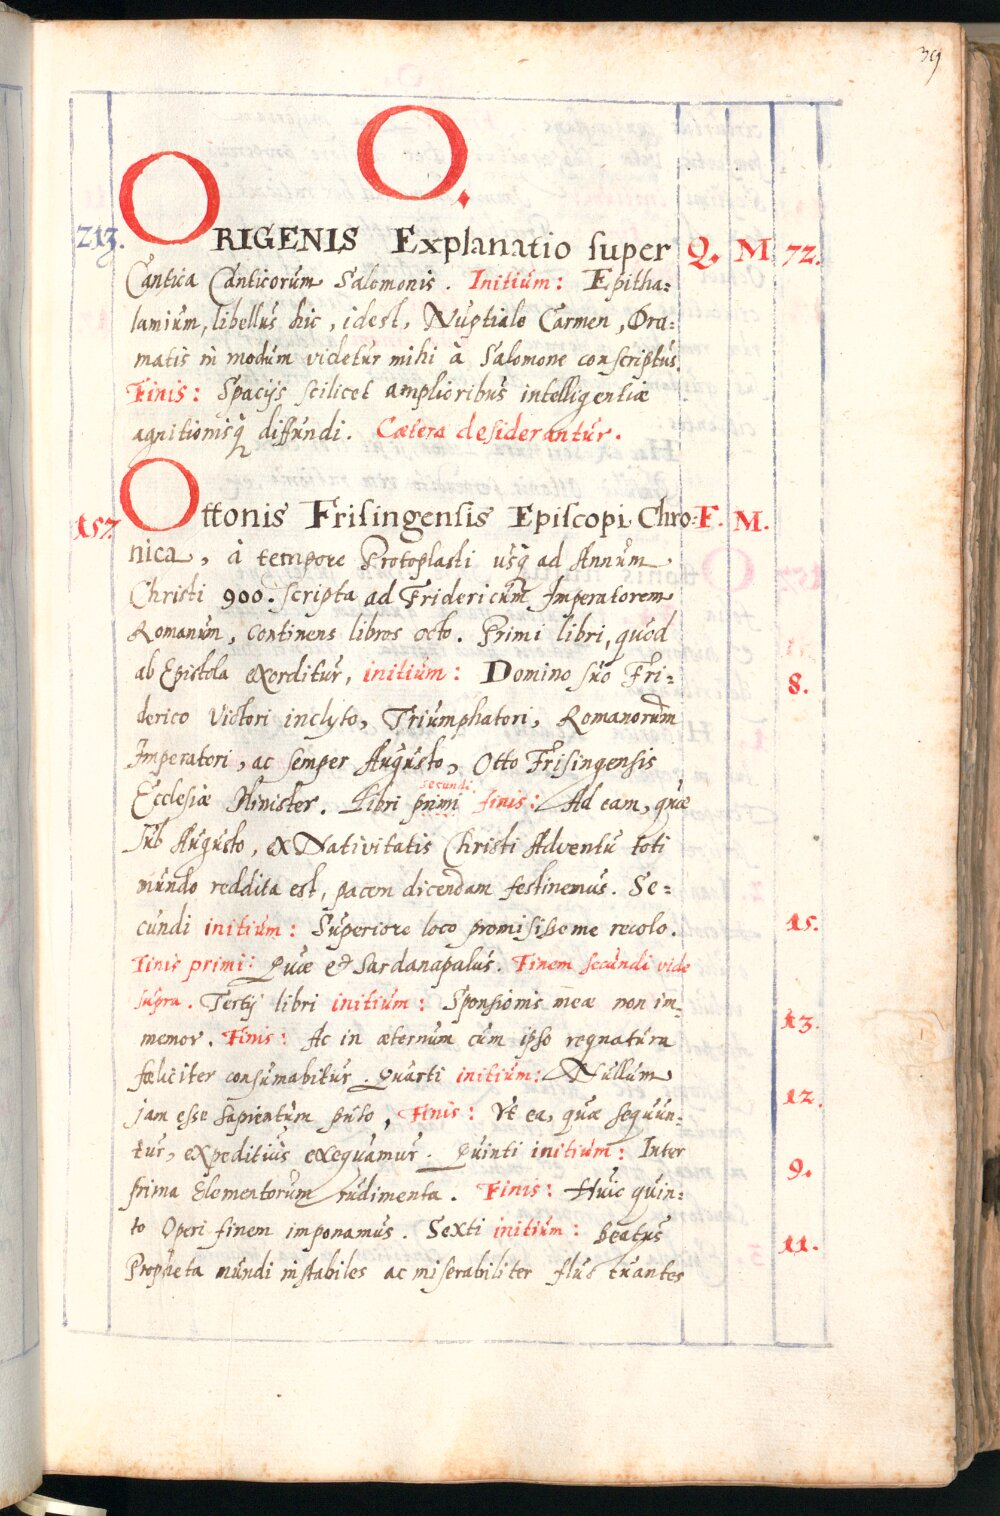 39
O.
213. ORIGENIS Explanatio super Q. M 72.
Cantica Canticorum Salomonis. Initium: Epitha=
lamium, libellus hic, idest, Nuptiale Carmen, Dra=
matis in modum videtur mihi à Salomone conscriptus.
Finis: Spacijs scilicet amplioribus intelligentiæ
agnitionisq; diffundi. Cætera desiderantur.
157. Ottonis Frisingensis Episcopi Chro= F. M.
nica, à tempore Protoplasti usq; ad Annum
Christi 900. scripta ad Fridericum Imperatorem
Romanum, continens libros octo. Primi libri, quod
ab Epistola exorditur, initium: Domino suo Fri= 8.
derico Victori inclyto, Triumphatori, Romanorum
Imperatori, ac semper Augusto, Otto Frisingensis
secundi
Ecclesiæ Minister. Libri primi finis: Ad eam, quæ
sub Augusto, ex Nativitatis Christi Adventu toti
mundo reddita est, pacem dicendam festinemus. Se=
cundi initium: Superiore loco promisisse me recolo. 15.
Finis primi: Quæ et Sardanapalus. Finem secundi vide
supra. Tertij libri initium: Sponsionis meæ non im= 13.
memor. Finis: Ac in æternum cum ipso regnatura
fœliciter consumabitur. Quarti initium: Nullum 12.
jam esse sapientum puto, Finis: Vt ea, quæ sequun=
tur, expeditiùs exequamur. Quinti initium: Inter 9.
prima Elementorum rudimenta. Finis: Huic quin=
to Operi finem imponamus. Sexti initium: beatus 11.
Propheta mundi instabiles ac miserabiliter fluctuantes